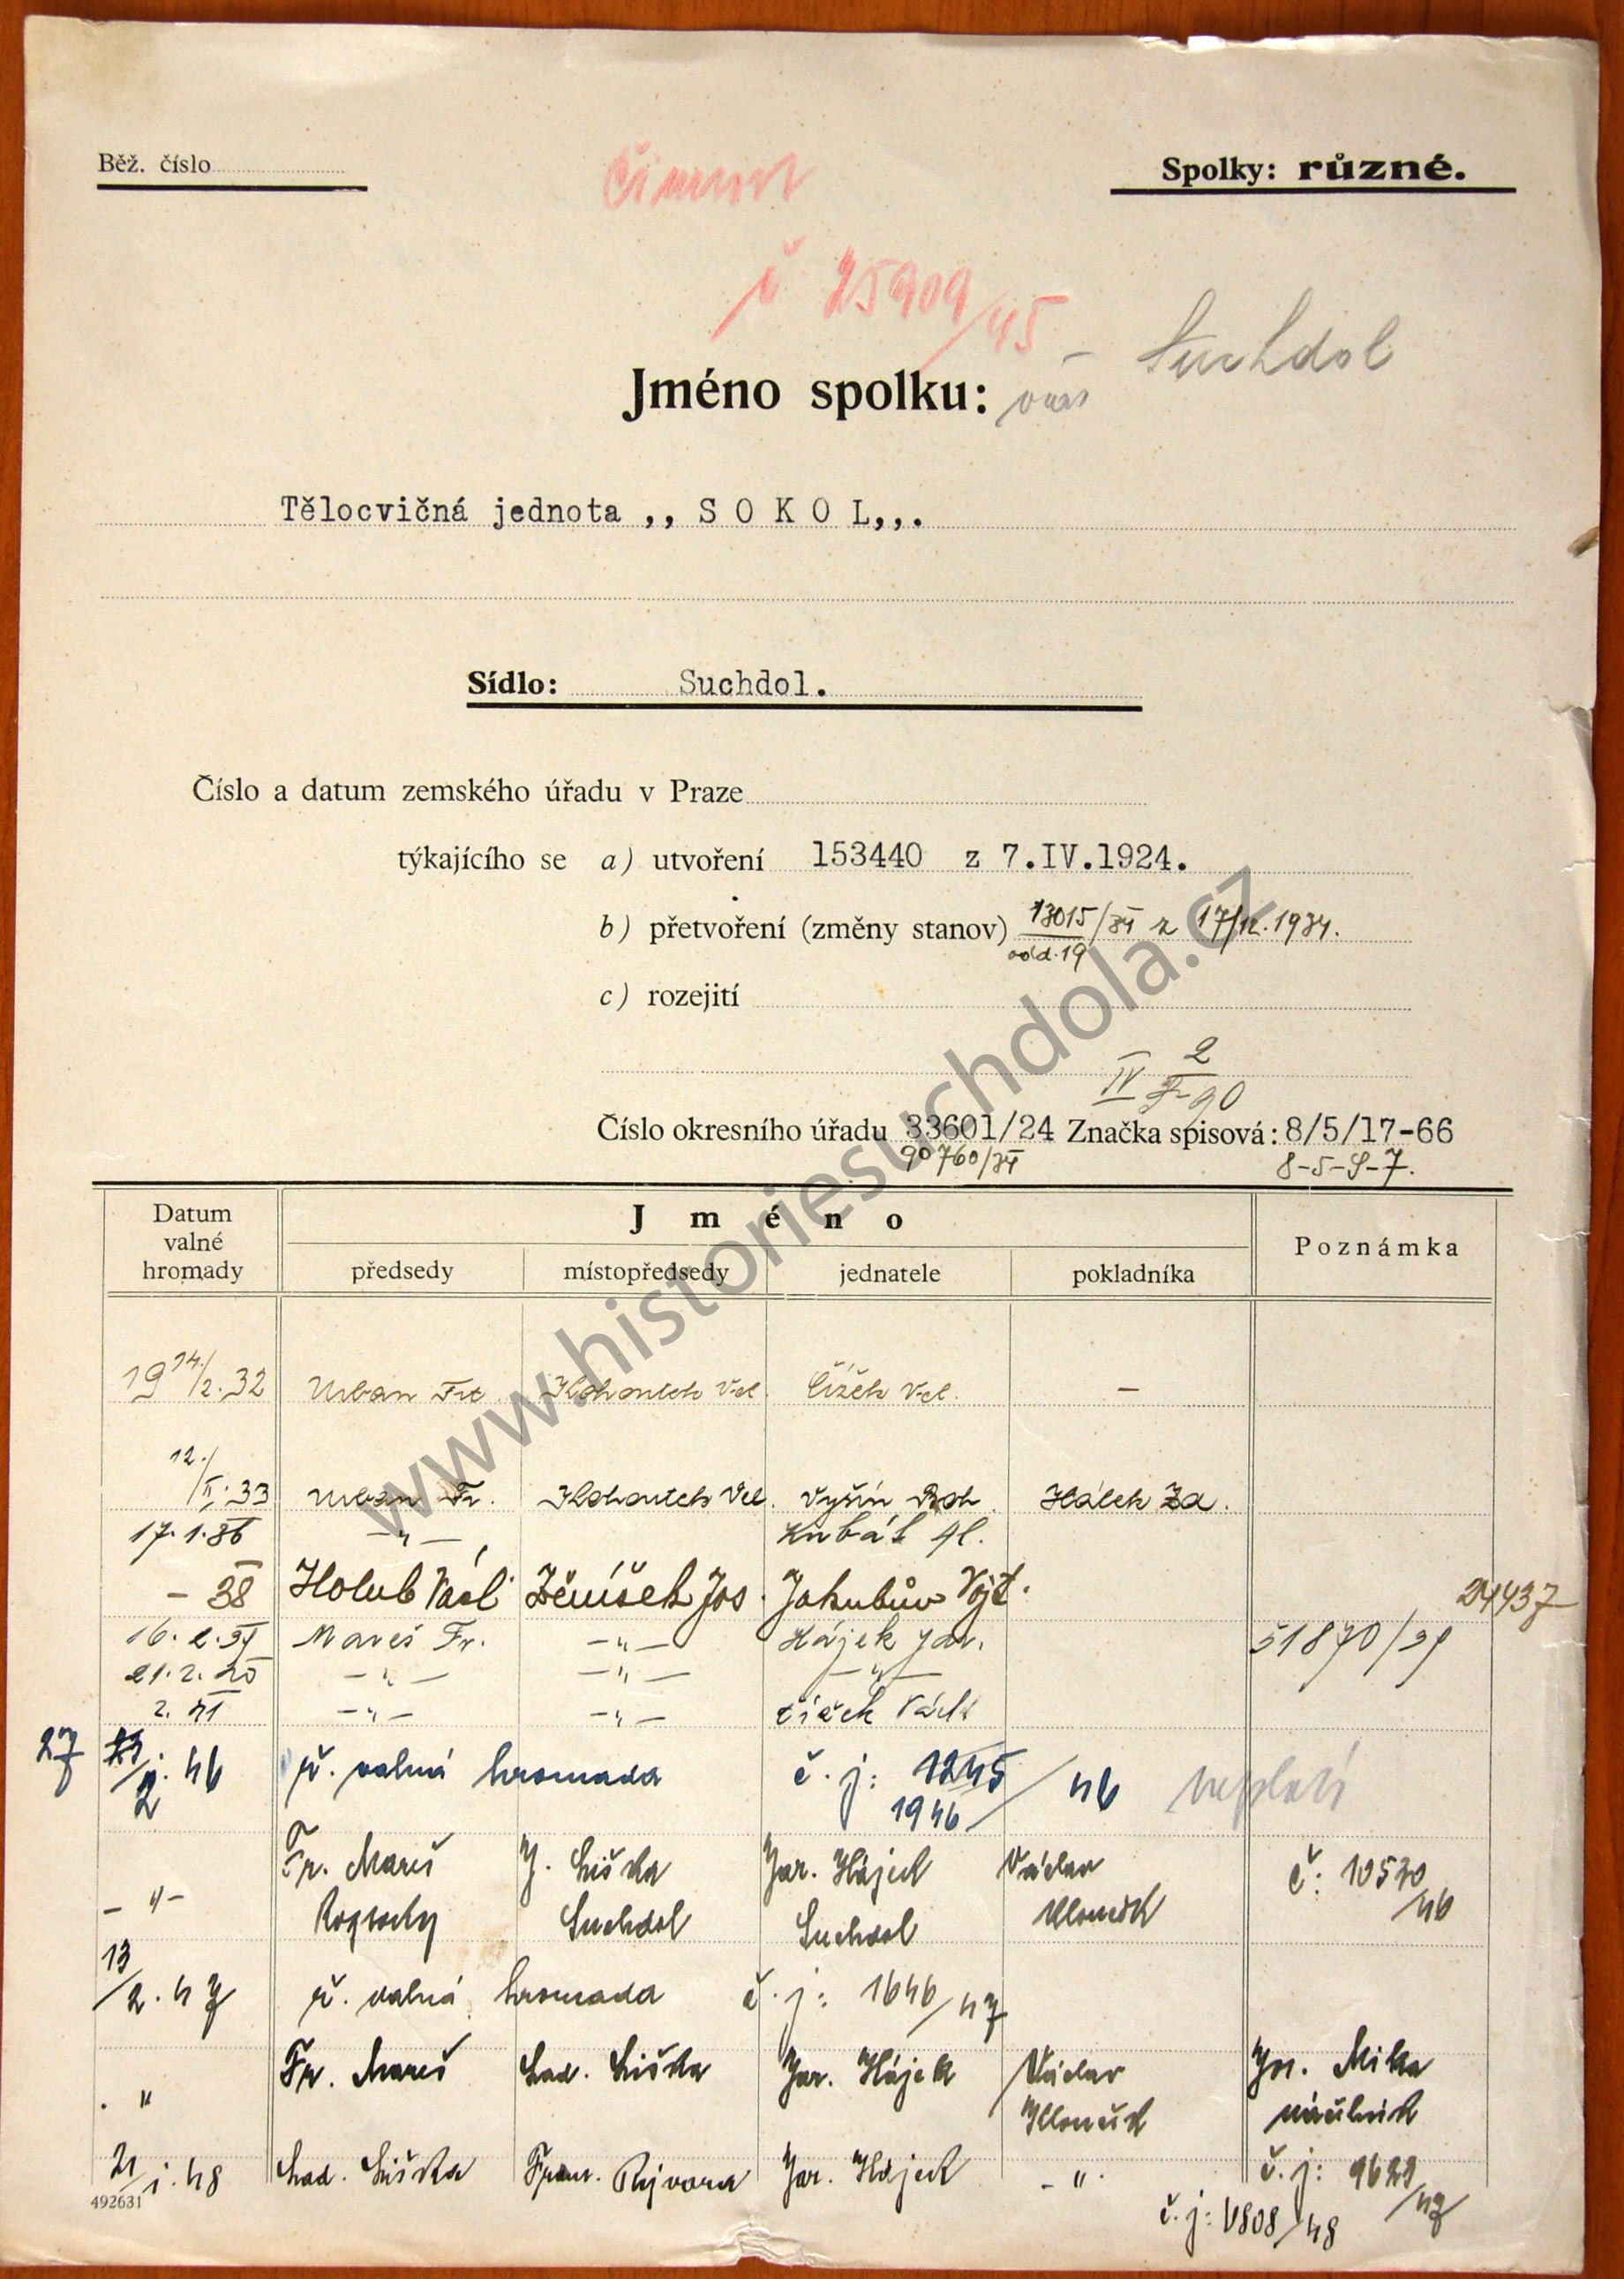 Běž. číslo
Spolky: různé.
č 25909/45
Suchdol
Jméno spolku:
Tělocvičná jednota ,, S O K O L,,.
Sídlo: Suchdol.
Číslo a datum zemského úřadu v Praze
týkajícího se a) utvoření 153440 z 7.IV.1924.
b) přetvoření (změny stanov) 13015/34 z 17/12.1934.
odd.19
c) rozejití
IV 2
Číslo okresního úřadu 33601/24 Značka spisová: 8/5/17-66
90760/34 8-5-S-7.
Datum valné hromady
Jméno
předsedy místopředsedy jednatele pokladníka
Poznámka
19 14./2. 32 Urban Frt. Kohoutek Vcl. Čížek Vcl. —
12./II. 33 Urban Fr. Kohoutek Vcl. Vyšín Hálek
17. 1. 36 —„— Kubát
— 38 Holub Václ. Zeníšek Jos. Jakubův Vojt. 24437
16. 2. 39 Mareš Fr. —„— Hájek Jar. 51870/39
21. 2. 40 —„— —„— —„—
2. 41 —„— —„— Čížek Václ.
27 2. 46 ř. valná hromada č. j: 1245/46 neplatí
1946
Fr. Mareš J. Liška Jar. Hájek Václav č: 10530/46
— „ — Roztoky Suchdol Suchdol Klouček
13/2. 47 ř. valná hromada č. j: 1646/47
Fr. Mareš Lad. Liška Jar. Hájek Václav Jos. Mika
„ Klouček náčelník
21/1. 48 Lad. Liška Frant. Rejvora Jar. Hájek — „ č. j: 9629/47
492631
č. j: 1808/48
www.historiesuchdola.cz